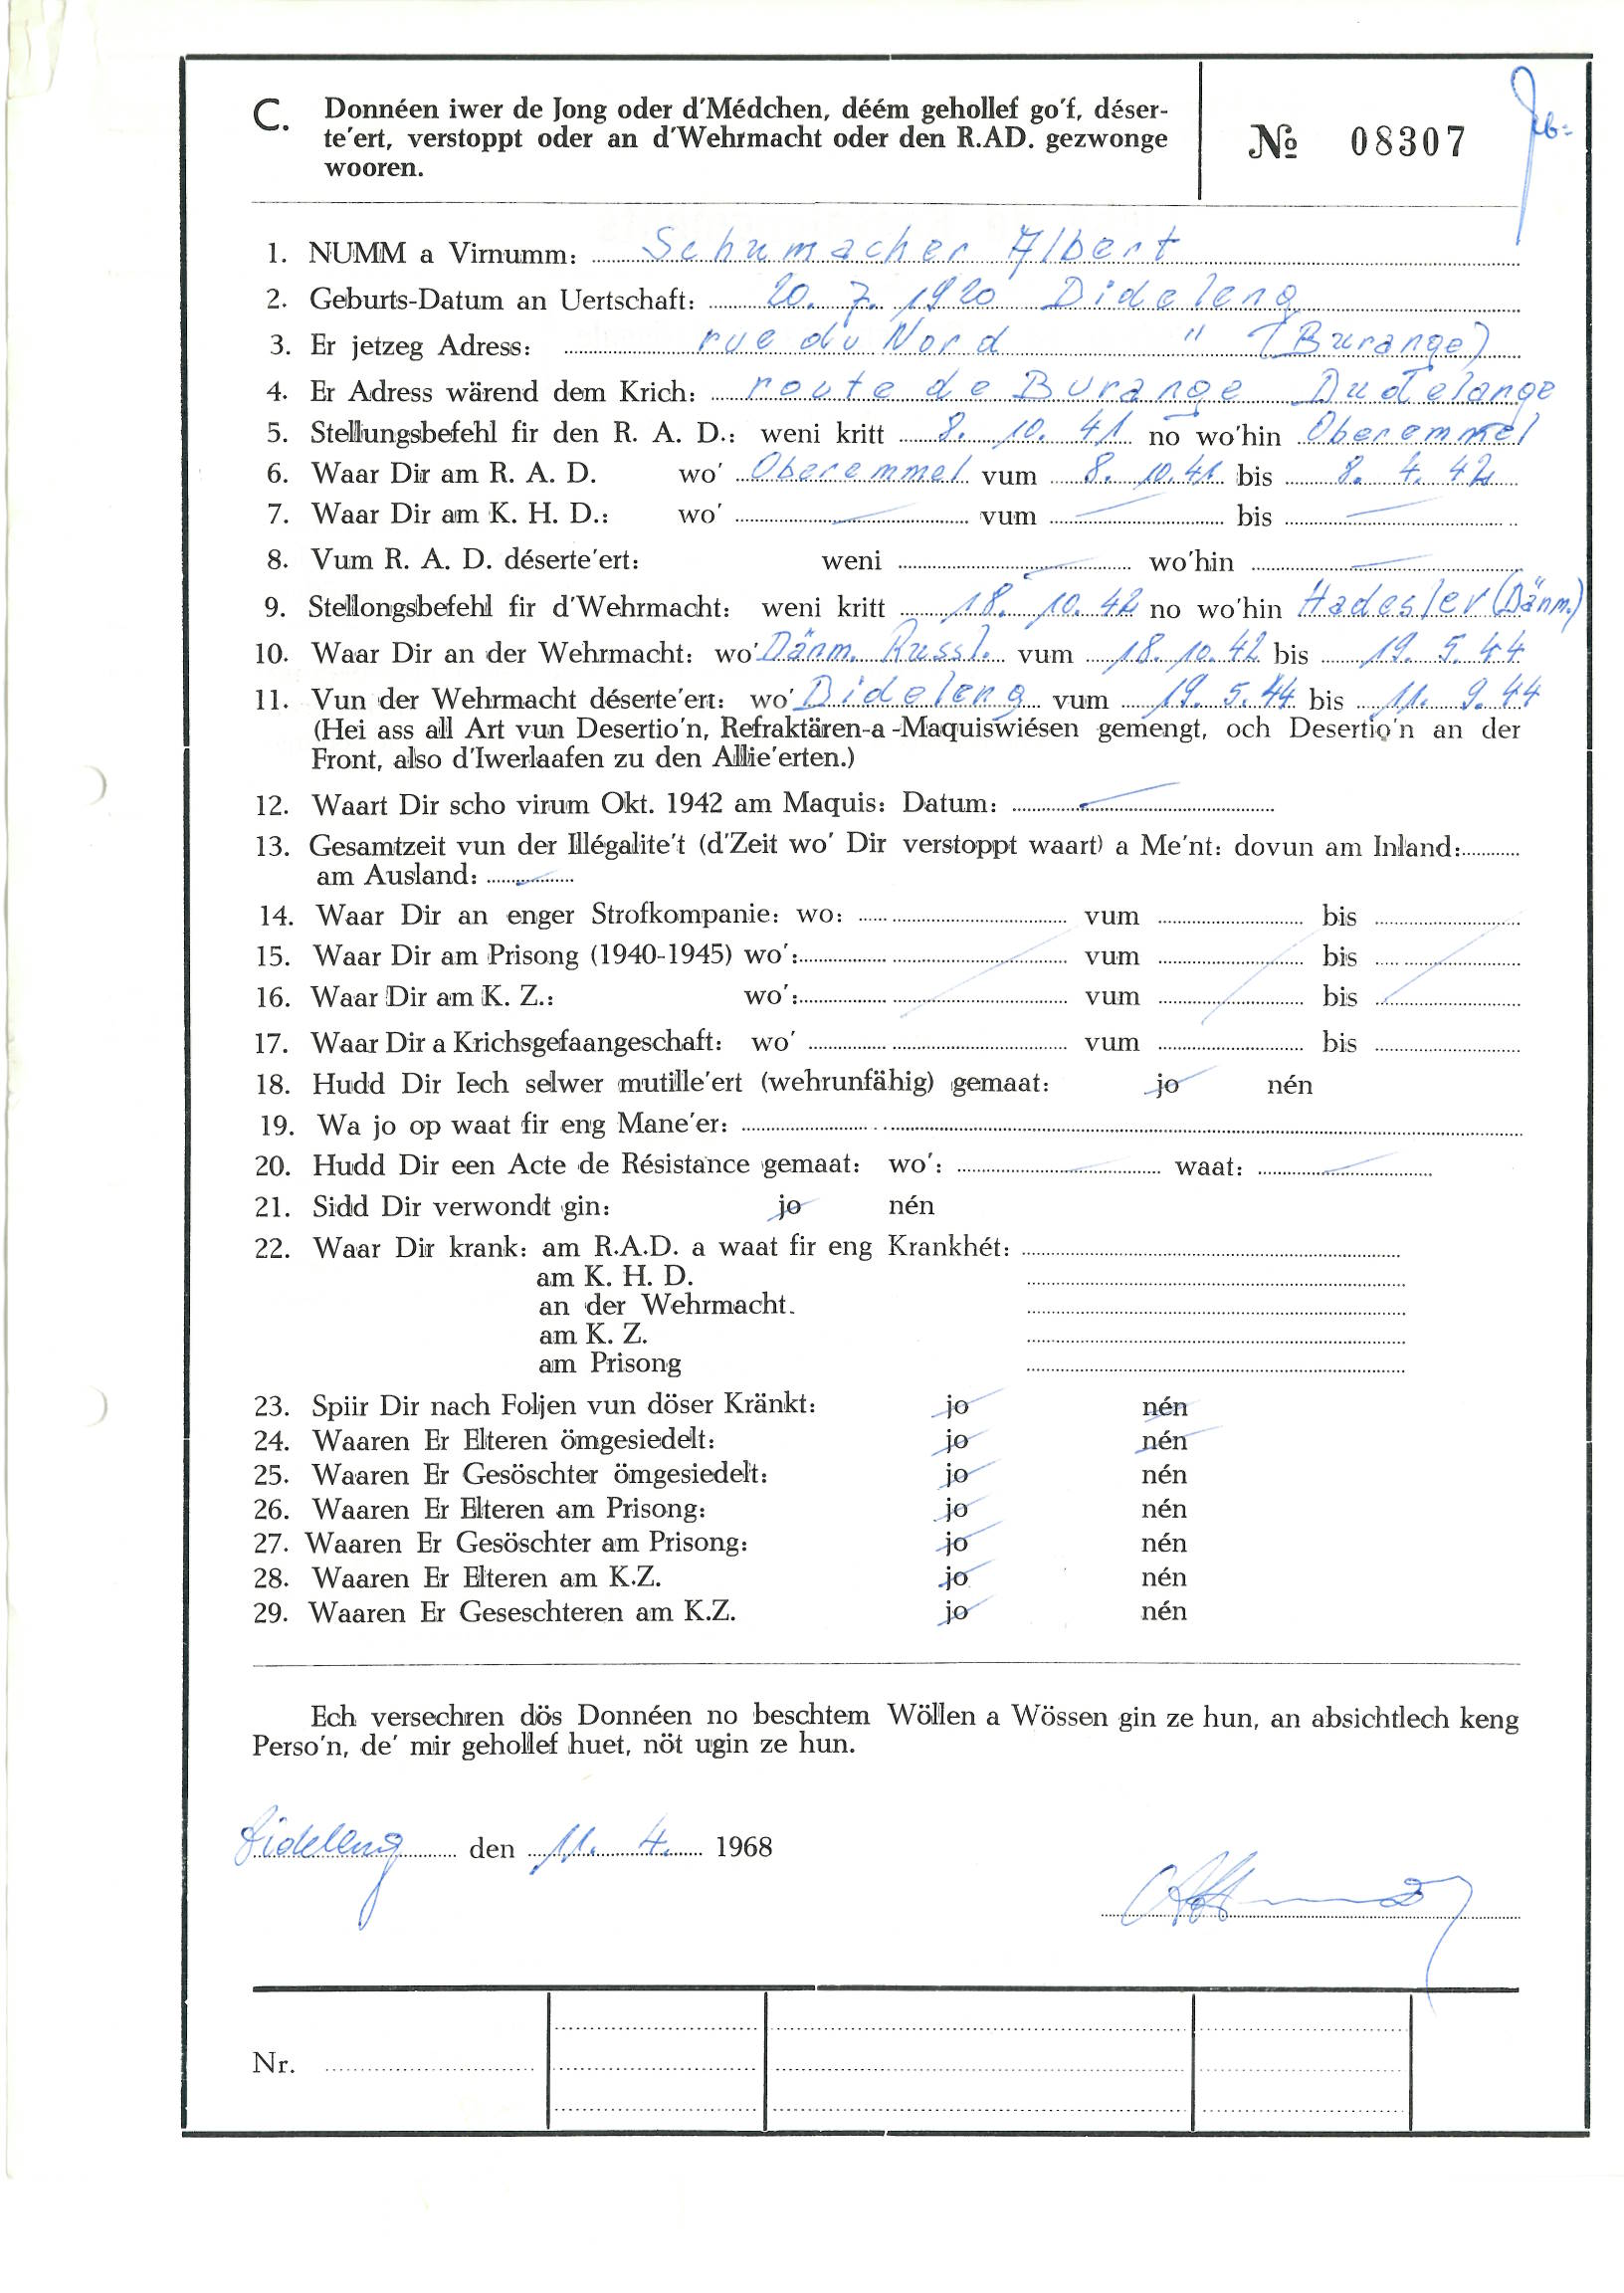 C. Donnéen iwer de Jong oder d'Médchen, déém gehollef go'f, déser-
te'ert, verstoppt oder an d'Wehrmacht oder den R.AD. gezwonge
wooren.
№ 08307
1. NUMM a Virnumm: Schumacher Albert
2. Geburts-Datum an Uertschaft: 20. 7. 1920 Dideleng
3. Er jetzeg Adress: rue du Nord " (Burange)
4. Er Adress wärend dem Krich: route de Burange Dudelange
5. Stellungsbefehl fir den R. A. D.: weni kritt 8. 10. 41 no wo'hin Oberemmel
6. Waar Dir am R. A. D. wo' Oberemmel vum 8. 10. 41 bis 8. 4. 42
7. Waar Dir am K. H. D.: wo' — vum — bis —
8. Vum R. A. D. déserte'ert: weni — wo'hin —
9. Stellongsbefehl fir d'Wehrmacht: weni kritt 18. 10. 42 no wo'hin Hadesler (Dänm.)
10. Waar Dir an der Wehrmacht: wo' Dänm. Russl. vum 18. 10. 42 bis 19. 5. 44
11. Vun der Wehrmacht déserte'ert: wo' Dideleng vum 19. 5. 44 bis 11. 9. 44
(Hei ass all Art vun Desertio'n, Refraktären-a-Maquiswiésen gemengt, och Desertio'n an der
Front, also d'Iwerlaafen zu den Allie'erten.)
12. Waart Dir scho virum Okt. 1942 am Maquis: Datum: —
13. Gesamtzeit vun der Illégalite't (d'Zeit wo' Dir verstoppt waart) a Me'nt: dovun am Inland:
am Ausland: —
14. Waar Dir an enger Strofkompanie: wo: vum bis
15. Waar Dir am Prisong (1940-1945) wo': vum bis
16. Waar Dir am K. Z.: wo': vum bis
17. Waar Dir a Krichsgefaangeschaft: wo' vum bis
18. Hudd Dir Iech selwer mutille'ert (wehrunfähig) gemaat: jo nén
19. Wa jo op waat fir eng Mane'er:
20. Hudd Dir een Acte de Résistance gemaat: wo': — waat: —
21. Sidd Dir verwondt gin: jo nén
22. Waar Dir krank: am R.A.D. a waat fir eng Krankhét:
am K. H. D.
an der Wehrmacht.
am K. Z.
am Prisong
23. Spiir Dir nach Foljen vun döser Kränkt: jo nén
24. Waaren Er Elteren ömgesiedelt: jo nén
25. Waaren Er Gesöschter ömgesiedelt: jo nén
26. Waaren Er Elteren am Prisong: jo nén
27. Waaren Er Gesöschter am Prisong: jo nén
28. Waaren Er Elteren am K.Z. jo nén
29. Waaren Er Geseschteren am K.Z. jo nén
Ech versechren dös Donnéen no beschtem Wöllen a Wössen gin ze hun, an absichtlech keng
Perso'n, de' mir gehollef huet, nöt ugin ze hun.
Dideleng den 11. 4. 1968
Nr.